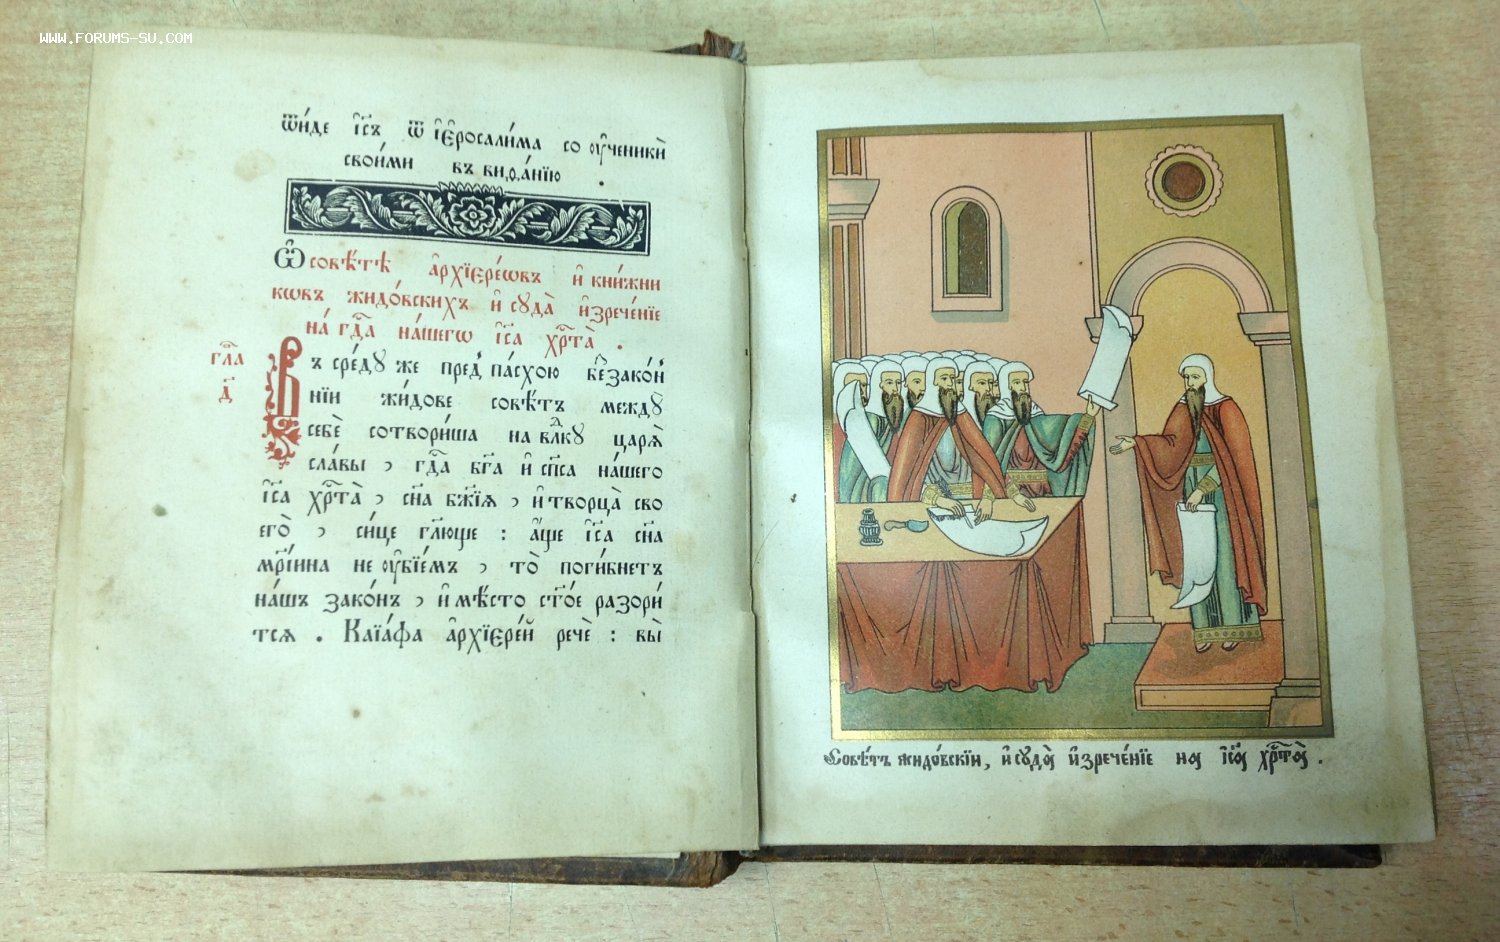 WWW.FORUMS-SU.COM
ѿи́де і҆с҃ъ ѿ і҆є҆росали́ма со ѹ҆ченикѝ
свои́ми въ виѳа́нїю .
Ѡ҆ совѣ́тѣ а҆рхїєре́ѡвъ и҆ кни́жни
кѡвъ жидо́вскихъ и҆ сꙋда̀ и҆зрече́нїе
на́ гд҃а на́шегѡ і҆с҃а хр҃та̀ .
гла҃
д҃
Въ сре́дꙋ же пред̾ па́схою беззако́н
нїи жи́дове совѣ́тъ междꙋ
себѐ сотвори́ша на влⷣкꙋ царѧ̀
сла́вы , гд҃а бг҃а и҆ сп҃са на́шего
і҆с҃а хр҃та̀ , сн҃а бж҃їѧ , и҆ творца̀ сво
его̀ , си́це гл҃юще : а҆́ще і҆с҃а сн҃а
мр҃і́ина не ѹ҆бїе́мъ , то̀ поги́бнетъ
на́шъ зако́нъ , и҆ мѣ́сто ст҃о́е разори́
тсѧ . Каїа́фа а҆рхїєре́й речѐ : вы̀
Совѣ́тъ жидо́вскїи , и҆ сꙋда̀ и҆зрече́нїе на і҆с҃а хр҃та̀ .